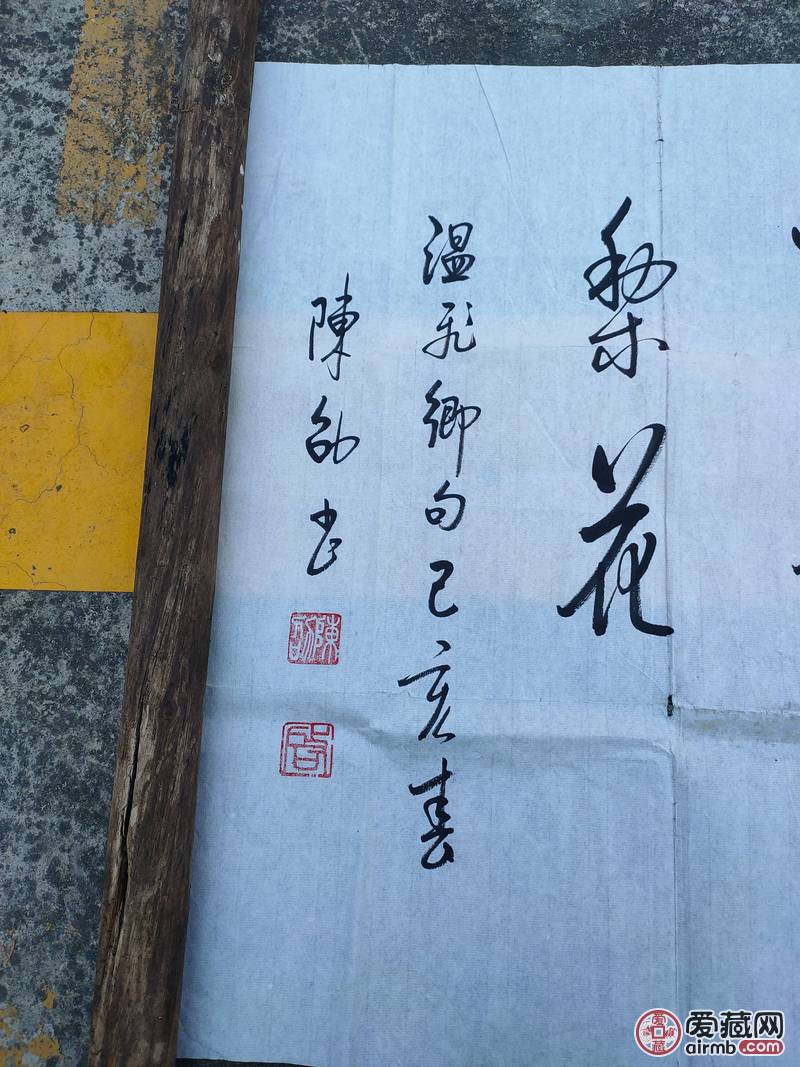 梨花
温飛卿句己亥春
陳 書
爱藏网
airmb.com